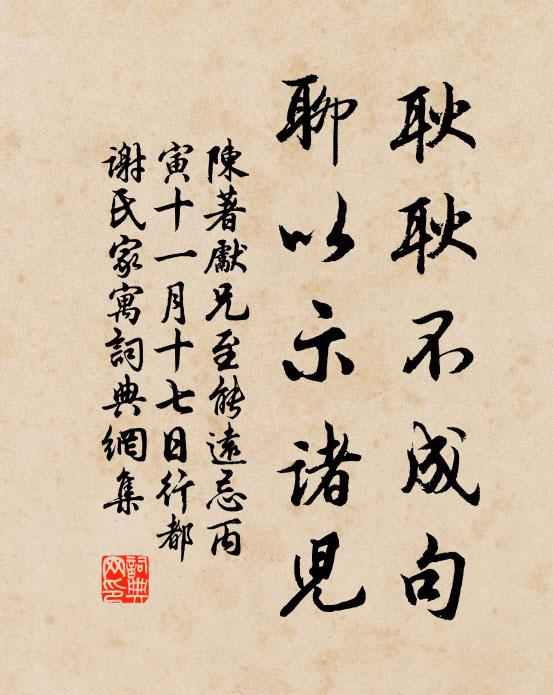 耿耿不成句
聊以示諸児
陳著獻兄至能遠忌丙
寅十一月十七日行都
謝氏家寓詞典網集
詞典网印